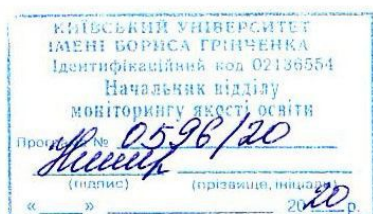 КИЇВСЬКИЙ УНІВЕРСИТЕТ
ІМЕНІ БОРИСА ГРІНЧЕНКА
Ідентифікаційний код 02136554
Начальник відділу
моніторингу якості освіти
№ 0596/20
(підпис) (прізвище, ініціали)
« » 2020 р.